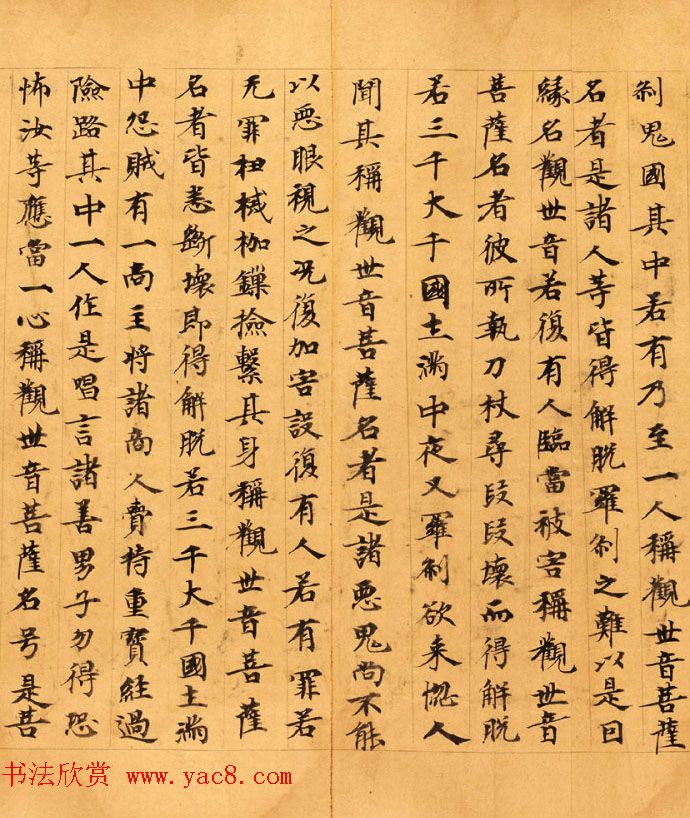 刹鬼國其中若有乃至一人稱觀世音菩薩
名者是諸人等皆得解脫羅刹之難以是因
緣名觀世音若復有人臨當被害稱觀世音
菩薩名者彼所執刀杖尋段段壞而得解脫
若三千大千國土滿中夜叉羅刹欲来惱人
聞其稱觀世音菩薩名者是諸惡鬼尚不能
以惡眼視之况復加害設復有人若有罪若
无罪杻械枷鏁撿繫其身稱觀世音菩薩
名者皆悉斷壞即得解脫若三千大千國土滿
中怨賊有一商主將諸商人賷持重寶經過
險路其中一人作是唱言諸善男子勿得恐
怖汝等應當一心稱觀世音菩薩名号是菩
书法欣赏 www.yac8.com